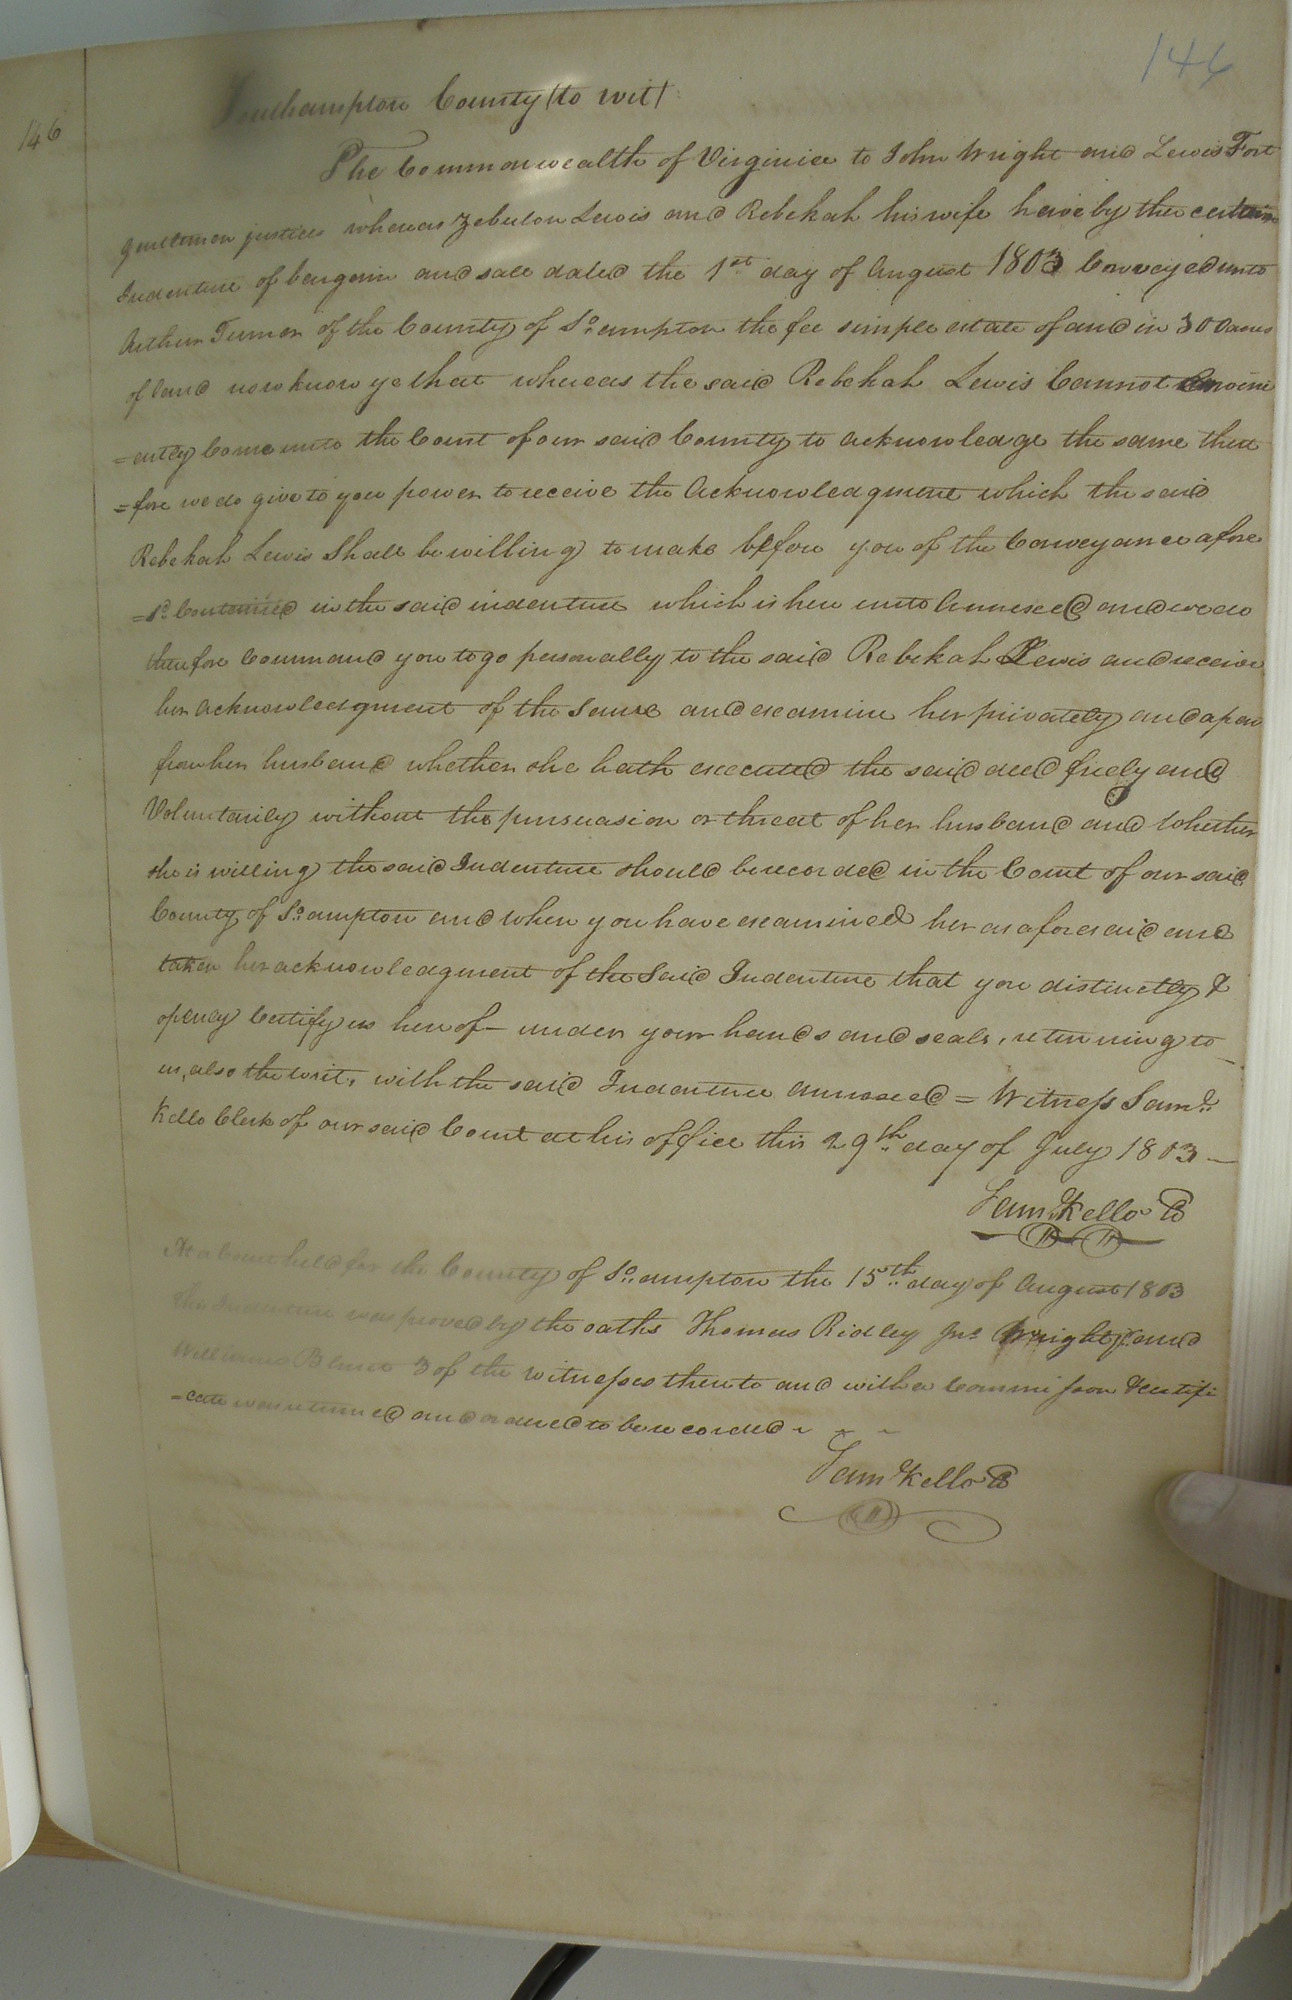 146
146
Southampton County (to wit)
The Commonwealth of Virginia to John Wright and Lewis Fort
gentlemen justices whereas Zebulon Lewis and Rebekah his wife have by the certain
Indenture of bargain and sale dated the 1st day of August 1803 Conveyed unto
Arthur Turner of the County of So. ampton the fee simple estate of and in 300 acres
of land now know ye that whereas the said Rebekah Lewis Cannot Conveni
=ently Come unto the Court of our said County to acknowledge the same there
=fore we do give to you power to receive the Acknowledgment which the said
Rebekah Lewis Shall be willing to make before you of the Conveyance afore
=sd. Contained in the said indenture which is here unto Annexed and we do
therefore Command you to go personally to the said Rebekah Lewis and receive
her acknowledgment of the Same and examine her privately and apart
from her husband whether she hath executed the said deed freely and
Voluntarily without the pursuasion or threat of her husband and Whether
she is willing the said Indenture should be recorded in the Court of our said
County of So. ampton and when you have examined her as aforesaid and
taken her acknowledgment of the Said Indenture that you distinctly &
openly Certify us hereof - under your hands and seals, returning to
us, also the writ, with the said Indenture annexed = Witness Saml.
Kello Clerk of our said Court at his office this 29th day of July 1803 -
Sam Kello
At a Court held for the County of So. ampton the 15th day of August 1803
This Indenture was proved by the oaths Thomas Ridley Jno Wright and
Williams Blunt 3 of the witnesses thereto and with a Commission & certifi
=cate was returned and ordered to be recorded ~ ~ ~
Sam Kello